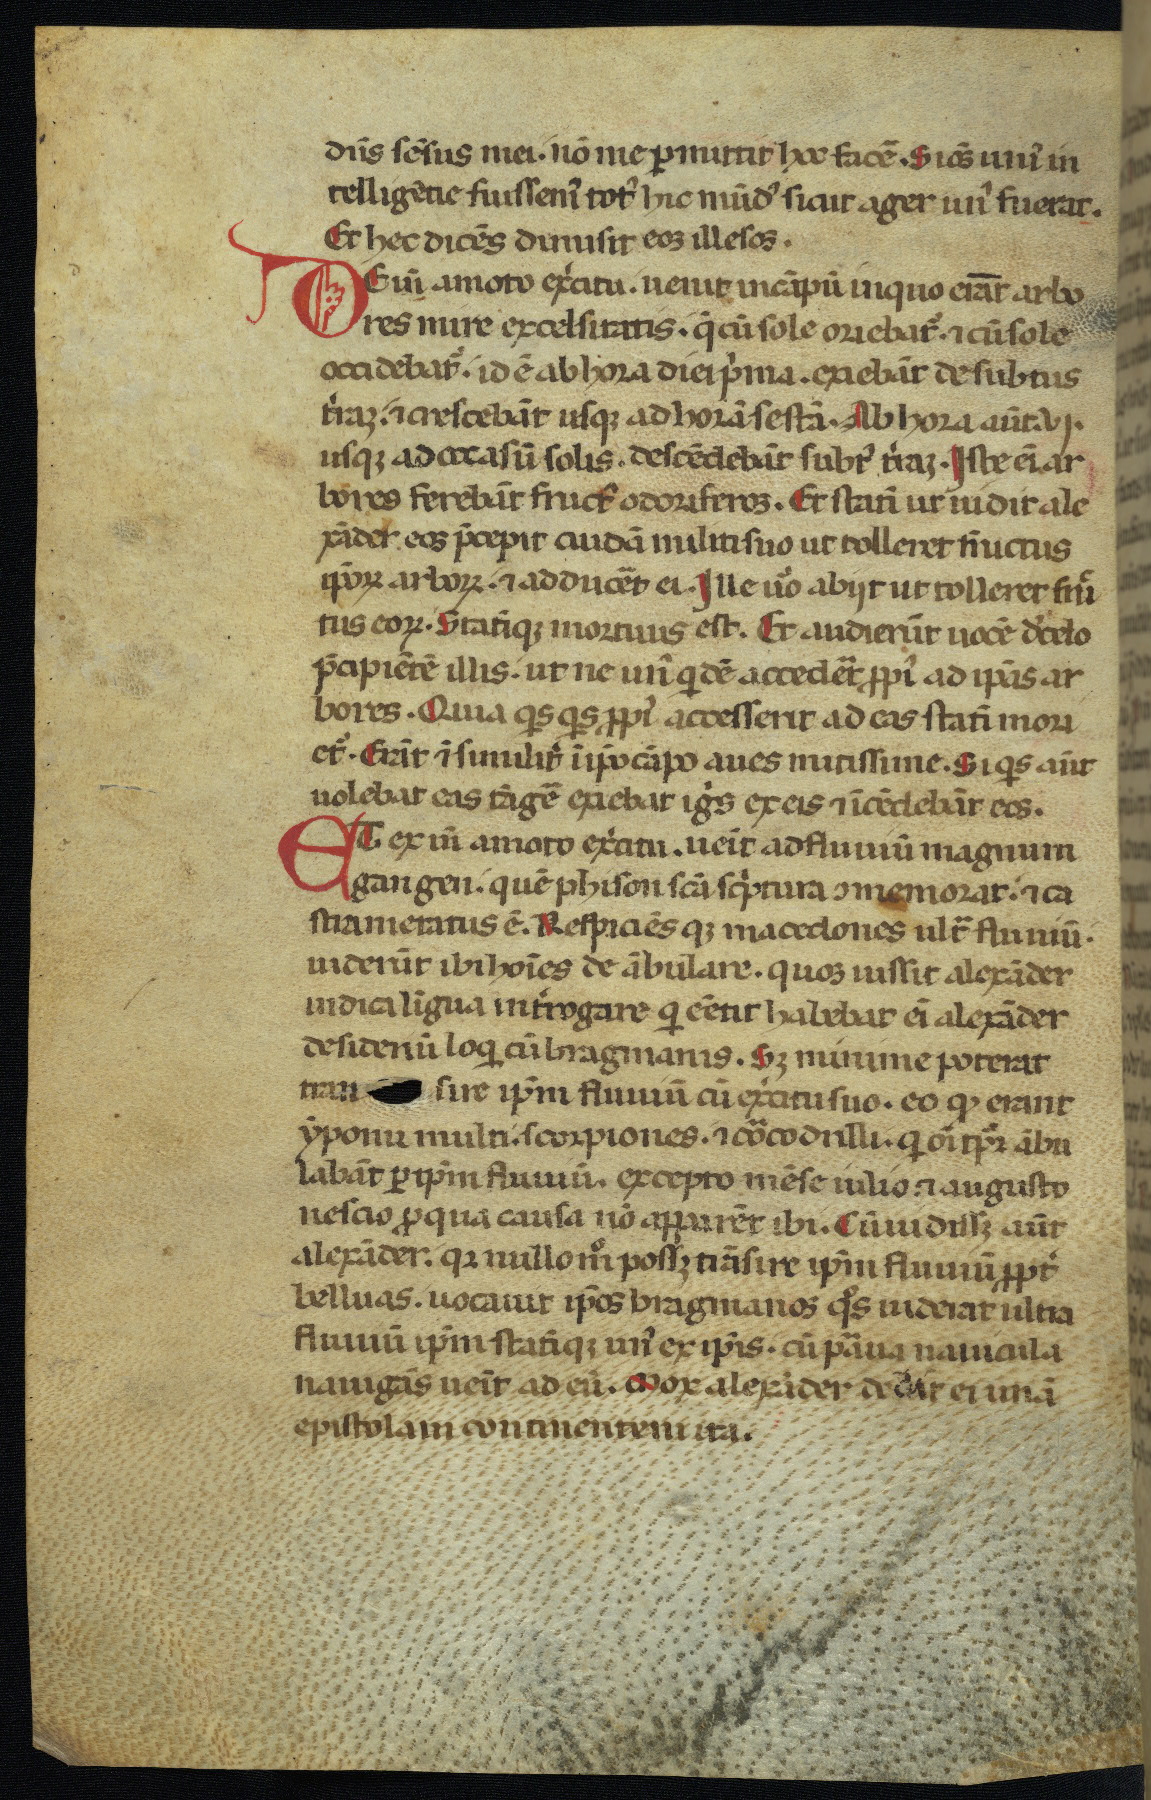 dn̄s sēsus mei. nō me ꝑmittit hoc facē. Si oēs uniꝰ in
telligētie fuissemꝰ totꝰ hic mūdꝰ sicut ager unꝰ fuerat.
Et hec dicēs dimisit eos illesos.
DEin amoto exc̓itu. uenit in cāpū in quo erāt arbo
res mire excelsitatis. q̄ cū sole oriebāt᷑. ⁊ cū sole
occidebāt᷑. id ē ab hora diei p̓ma. exiebāt de subtus
t̓ram. ⁊ crescebāt usqꝫ ad horā sestā. Ab hora aūt .vj.
usqꝫ ad occasū solis. descēdebāt subtꝰ t̓ram. Iste ei ar
bores ferebāt fructꝰ odoriferos. Et statī ut uidit ale
xāder eos p̄cepit cuidā militi suo ut tolleret fructus
ipsaꝝ arboꝝ. ⁊ adducēt ei. Ille uͦo abijt ut tolleret fruc
tus eoꝝ. Statīqꝫ mortuus est. Et audierūt uocē d̓ celo
p̄cipiētē illis. ut ne unꝰ qͥdē accedēt ꝓpiꝰ ad ip̄as ar
bores. Quia qͥsqͥs ꝓpiꝰ accesserit ad eas statī mori
et᷑. Erāt ⁊ similit̓ ī ip̄o cāpo aues mitissime. Si qͥs aūt
uolebat eas tāgē exiebat igͥs ex eis ⁊ īcēdebāt eos.
ET exin amoto exc̓itu. ueīt ad fluuiū magnum
gangen. quē phison scā sc̓ptura ꝯmemorat. ⁊ ca
strametatus ē. Respiciēs qꝫ macedones ultͣ fluuiū.
uiderūt ibi hoīes deābulare. quos iussit alexāder
indica līgua int̓rogare qͥ eēnt habebat eī alexāder
desideriū loqͥ cū bragmanis. Sꝫ minime poterat
tran sire ip̄m fluuiū cū exc̓itu suo. eo qꝫ erant
ẏpotami multi. scorpiones. ⁊ cocodrilli. qͥ oī tp̄r ābu
labāt ꝑ ip̄m fluuiū. excepto mēse iulio. ⁊ augusto
nescio ꝓ qua causa nō apparēt ibi. Cū uidissꝫ aūt
alexāder. qꝛ nullo mͦ possꝫ trāsire ip̄m fluuiū ꝓpt̓
belluas. uocauit ip̄os bragmanos qͦs uiderat ultra
fluuiū ip̄m statīqꝫ unꝰ ex ip̄is. cū pͣua nauicula
nauigās ueīt ad eū. Mox alexāder dedit ei unā
epistolam continentem ita.